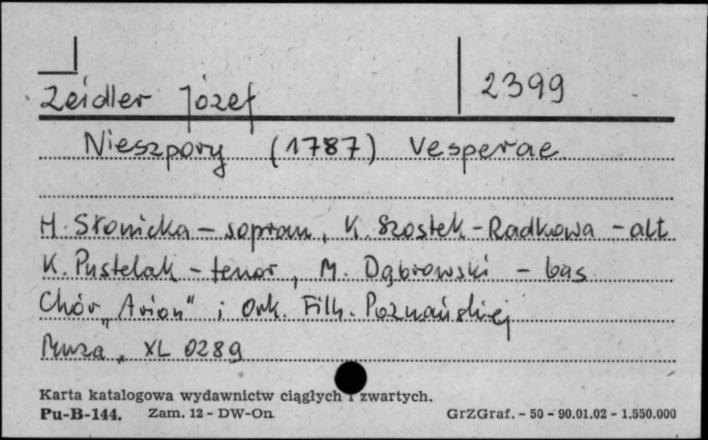 Zeidler Józef 2399
Nieszpory (1787) Vesperae
H. Słonicka – sopran, K. Szostek-Radkowa – alt
K. Pustelak – tenor, M. Dąbrowski – bas
Chór „Arion" i Ork. Filh. Poznańskiej
Muza, XL 0289
Karta katalogowa wydawnictw ciągłych i zwartych.
Pu-B-144. Zam. 12 - DW-On GrZGraf. - 50 - 90.01.02 - 1.550.000